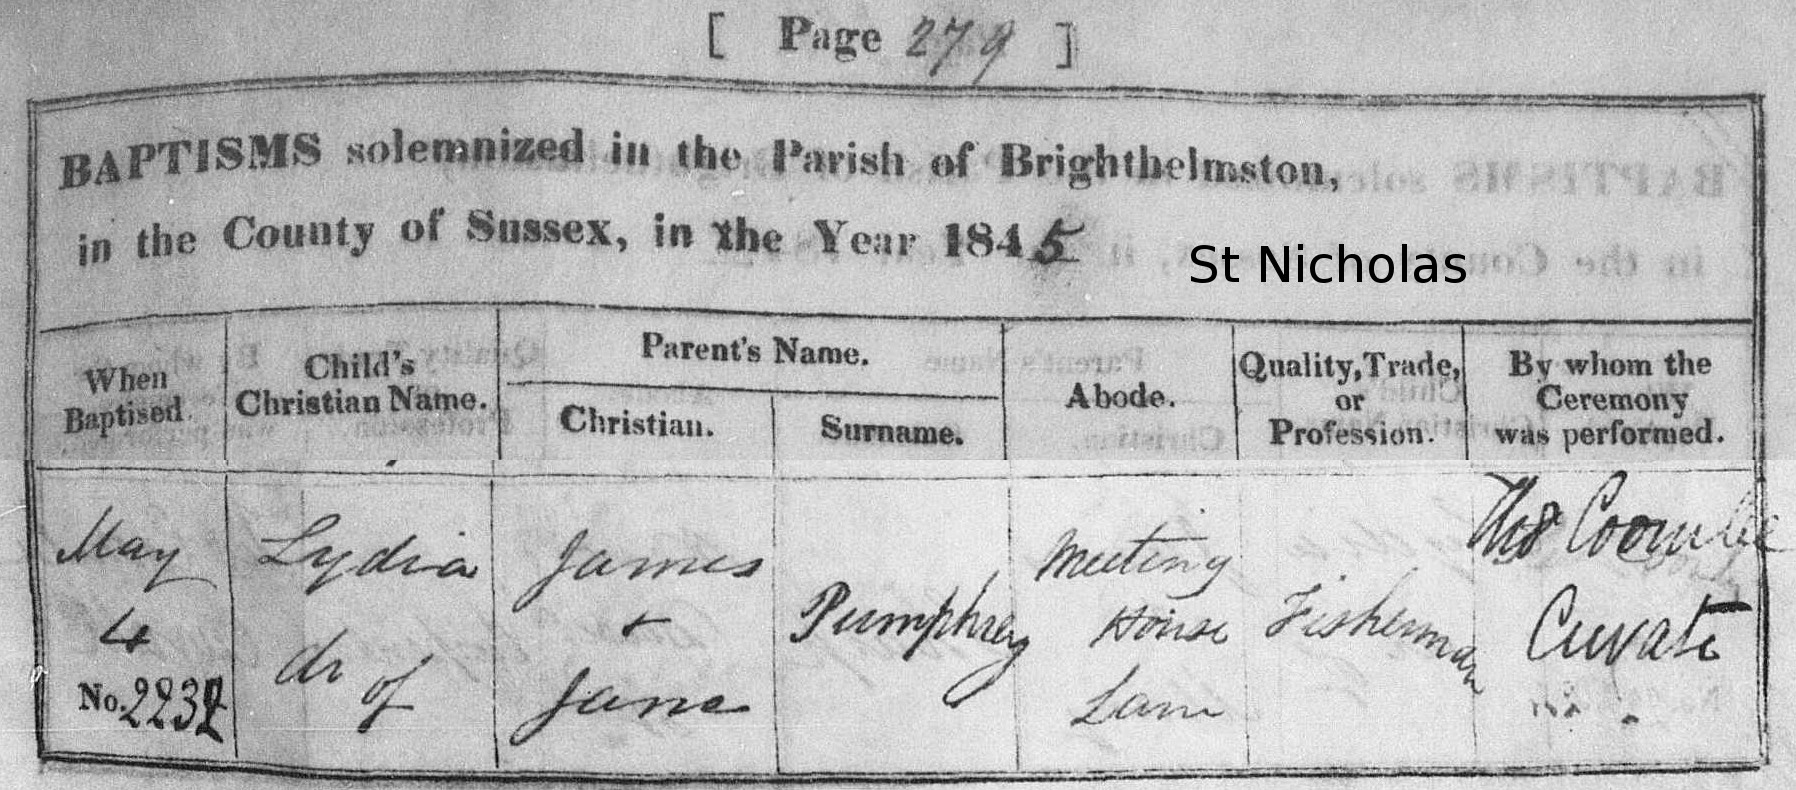 [ Page 279 ]
BAPTISMS solemnized in the Parish of Brighthelmston,
in the County of Sussex, in the Year 1845
St Nicholas
When
Baptised.
Child's
Christian Name.
Parent's Name.
Christian.
Surname.
Abode.
Quality, Trade,
or
Profession.
By whom the
Ceremony
was performed.
May
4
No. 2232
Lydia
dr of
James
+
Jane
Pumphrey
Meeting
House
Lane
Fisherman
Thos Coombe
Curate